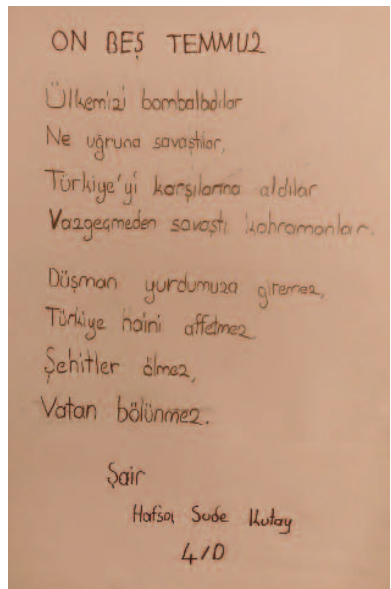 ON BEŞ TEMMUZ
Ülkemizi bombaladılar
Ne uğruna savaştılar,
Türkiye'yi karşılarına aldılar
Vazgeçmeden savaştı kahramanlar.
Düşman yurdumuza giremez,
Türkiye haini affetmez
Şehitler ölmez,
Vatan bölünmez.
Şair
Hafsa Sude Kutay
4/D